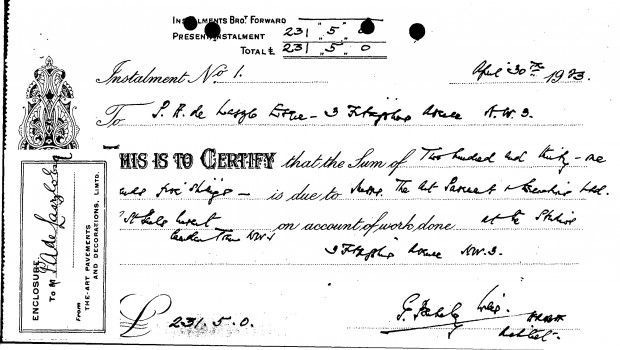 INSTALMENTS BROT FORWARD " "
PRESENT INSTALMENT 231 " 5 " 0
TOTAL £ 231 " 5 " 0
Instalment No 1. April 30th 1923.
To P. A. de Laszlo Esqre - 3 Fitzjohns Avenue N.W.3.
THIS IS TO CERTIFY that the Sum of Two hundred and thirty-one
five shillings - is due to Messrs. The Art Pavement & Decorations Ltd.
St on account of work done at the Studio
Camden Town NW1 3 Fitzjohns Avenue NW.3.
£ 231. 5. 0.
ENCLOSURE
To M P A de Laszlo Esq
From
THE ART PAVEMENTS
AND DECORATIONS, LIMTD.